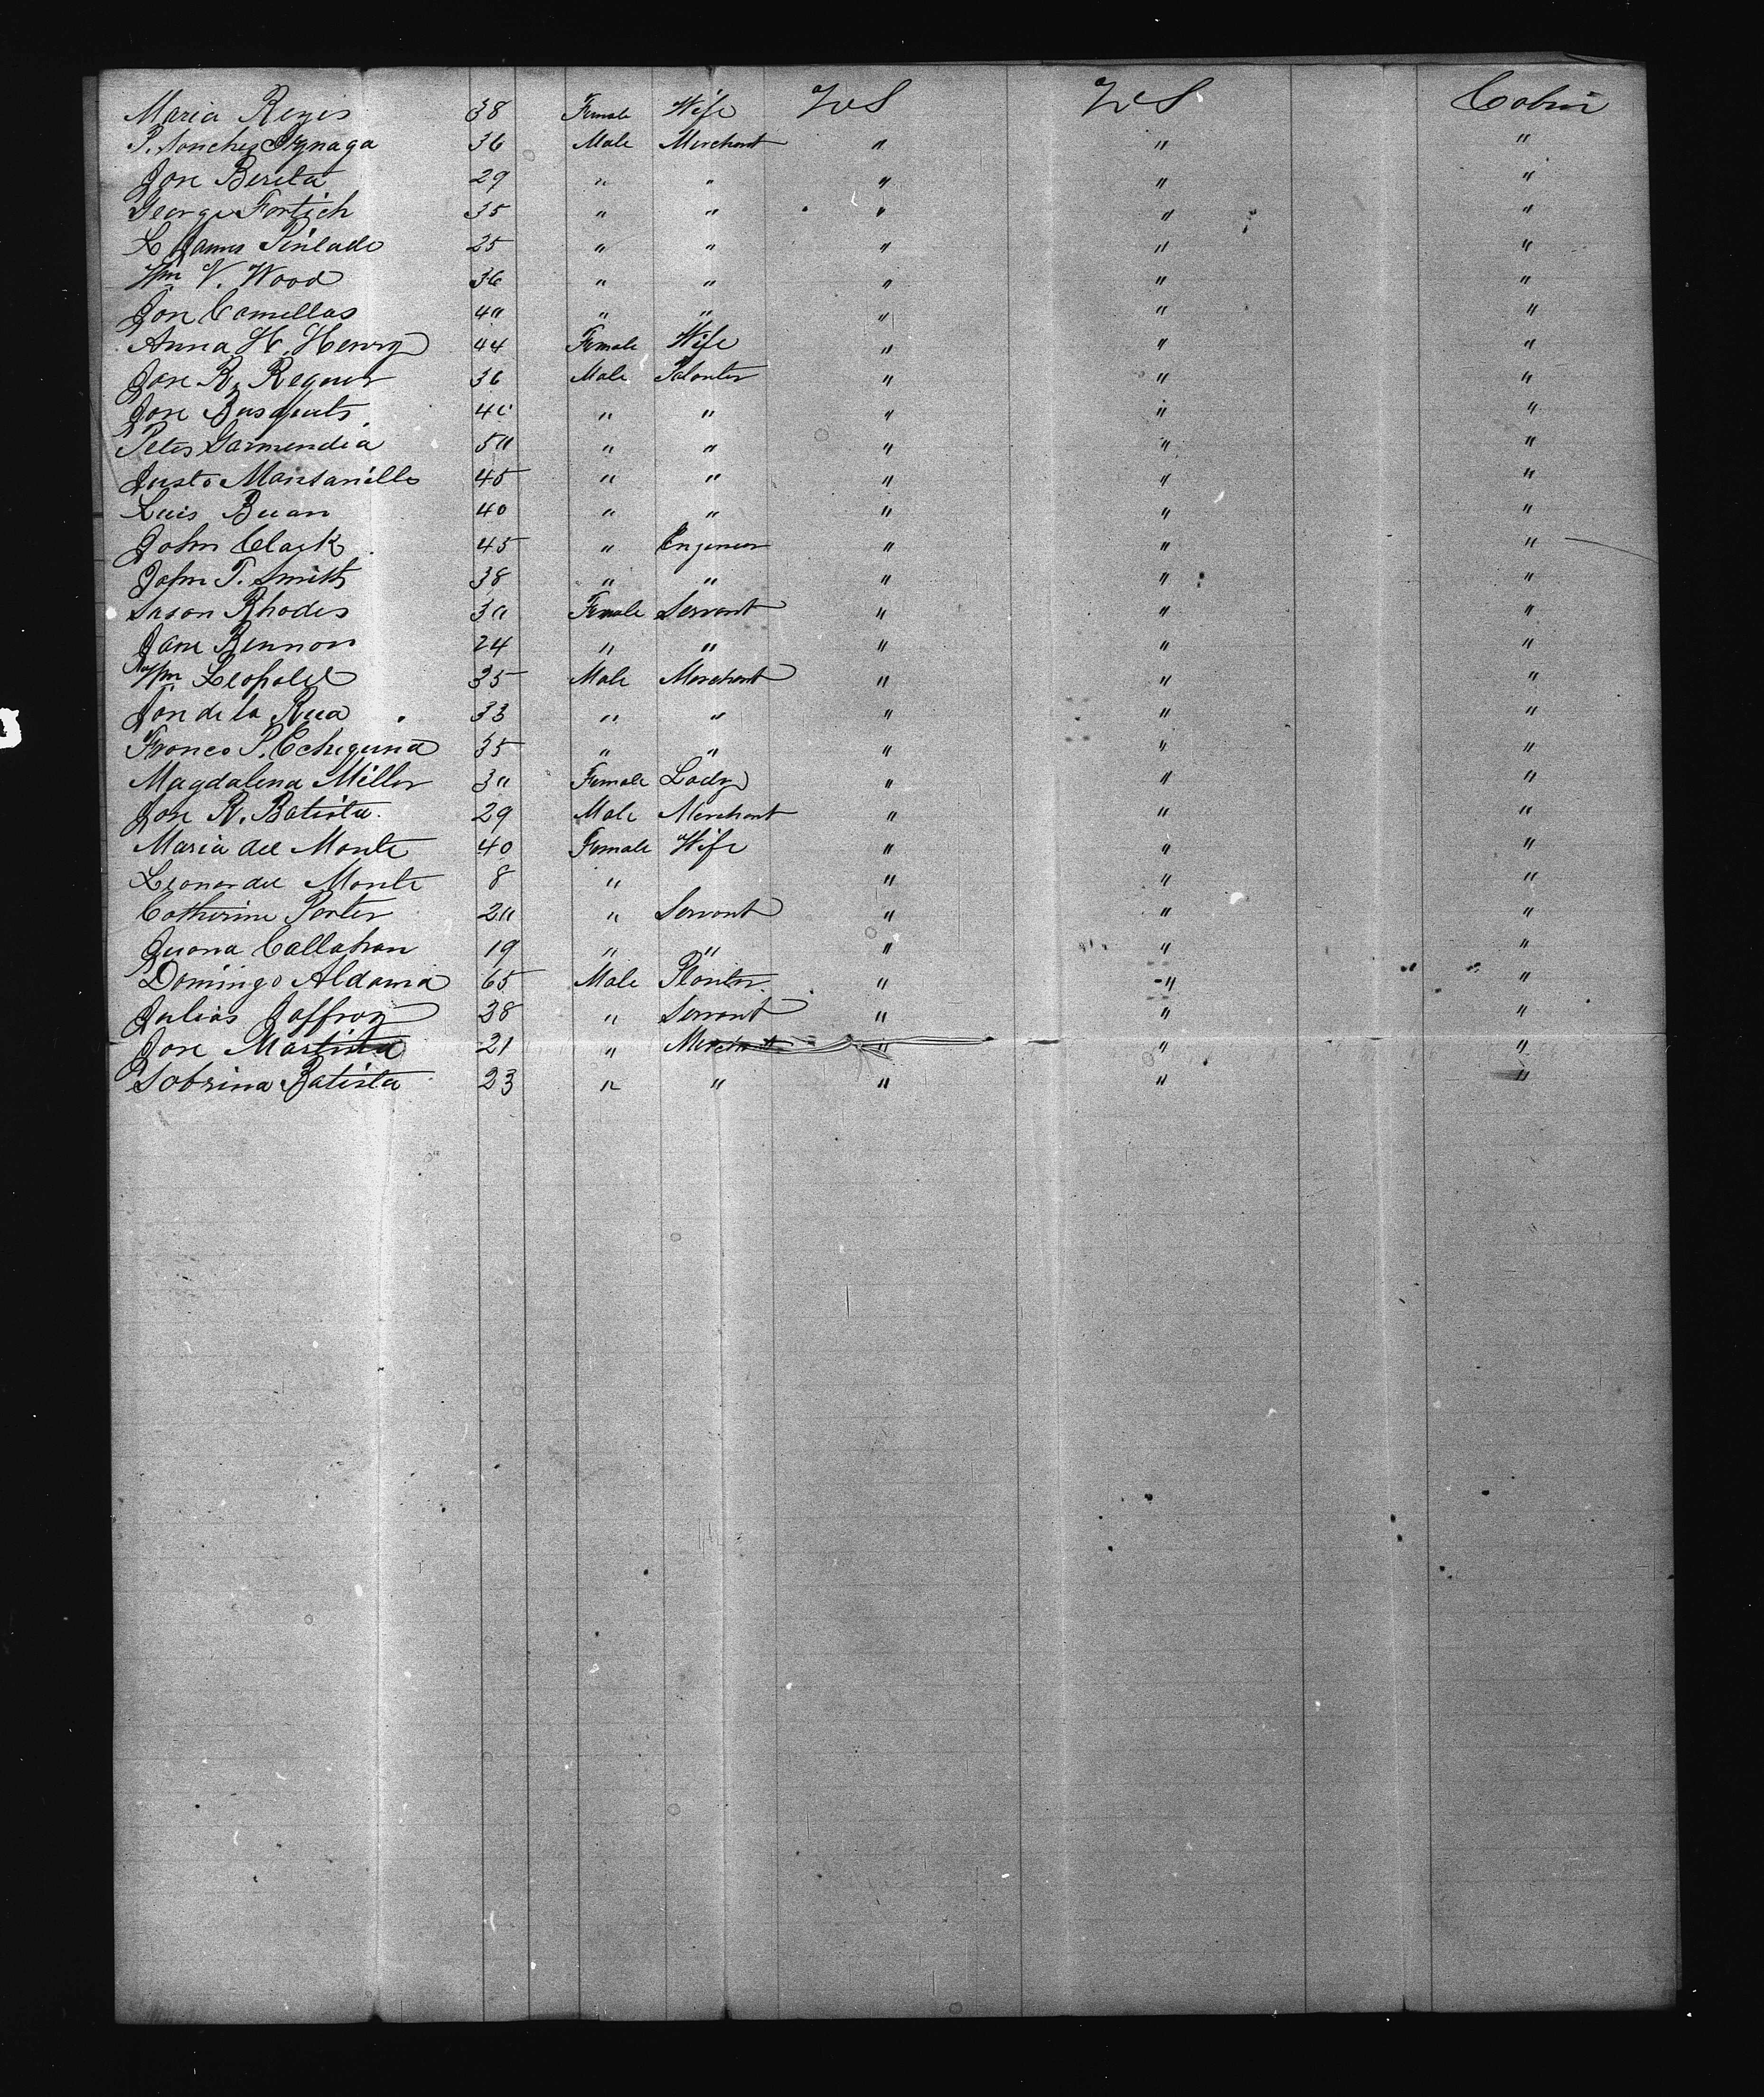 Maria Reyes 38 Female Wife US US Cabin
P. Sanchez Yznaga 36 Male Merchant " " "
Jose Bereta 29 " " " " "
George Fortich 35 " " " " "
L James Pinlado 25 " " " " "
Wm V. Wood 36 " " " " "
Jose Comellas 40 " " " " "
Anna H. Henry 44 Female Wife " " "
Jose R. 36 Male Planter " " "
Jose Busquets 40 " " " " "
Peter Garmendia 50 " " " " "
Justo Mansanillo 45 " " " " "
Luis Buan 40 " " " " "
John Clark 45 " Engineer " " "
John T. Smith 38 " " " " "
Susan Rhodes 30 Female Servant " " "
Jane Bennon 24 " " " " "
Wm Leopold 35 Male Merchant " " "
Jose de la Rua 33 " " " " "
Franco P. 35 " " " " "
Magdalena Miller 30 Female Lady " " "
Jose R. Batista 29 Male Merchant " " "
Maria del Monte 40 Female Wife " " "
Leonor del Monte 8 " " " "
Catherine Porter 20 " Servant " " "
Juana Callahan 19 " " " " "
Domingo Aldama 65 Male Planter " " "
Julias Jaffroy 38 " Servant " " "
Jose Martina 21 " Merchant " " "
Sobrina Batista 23 " " " " "